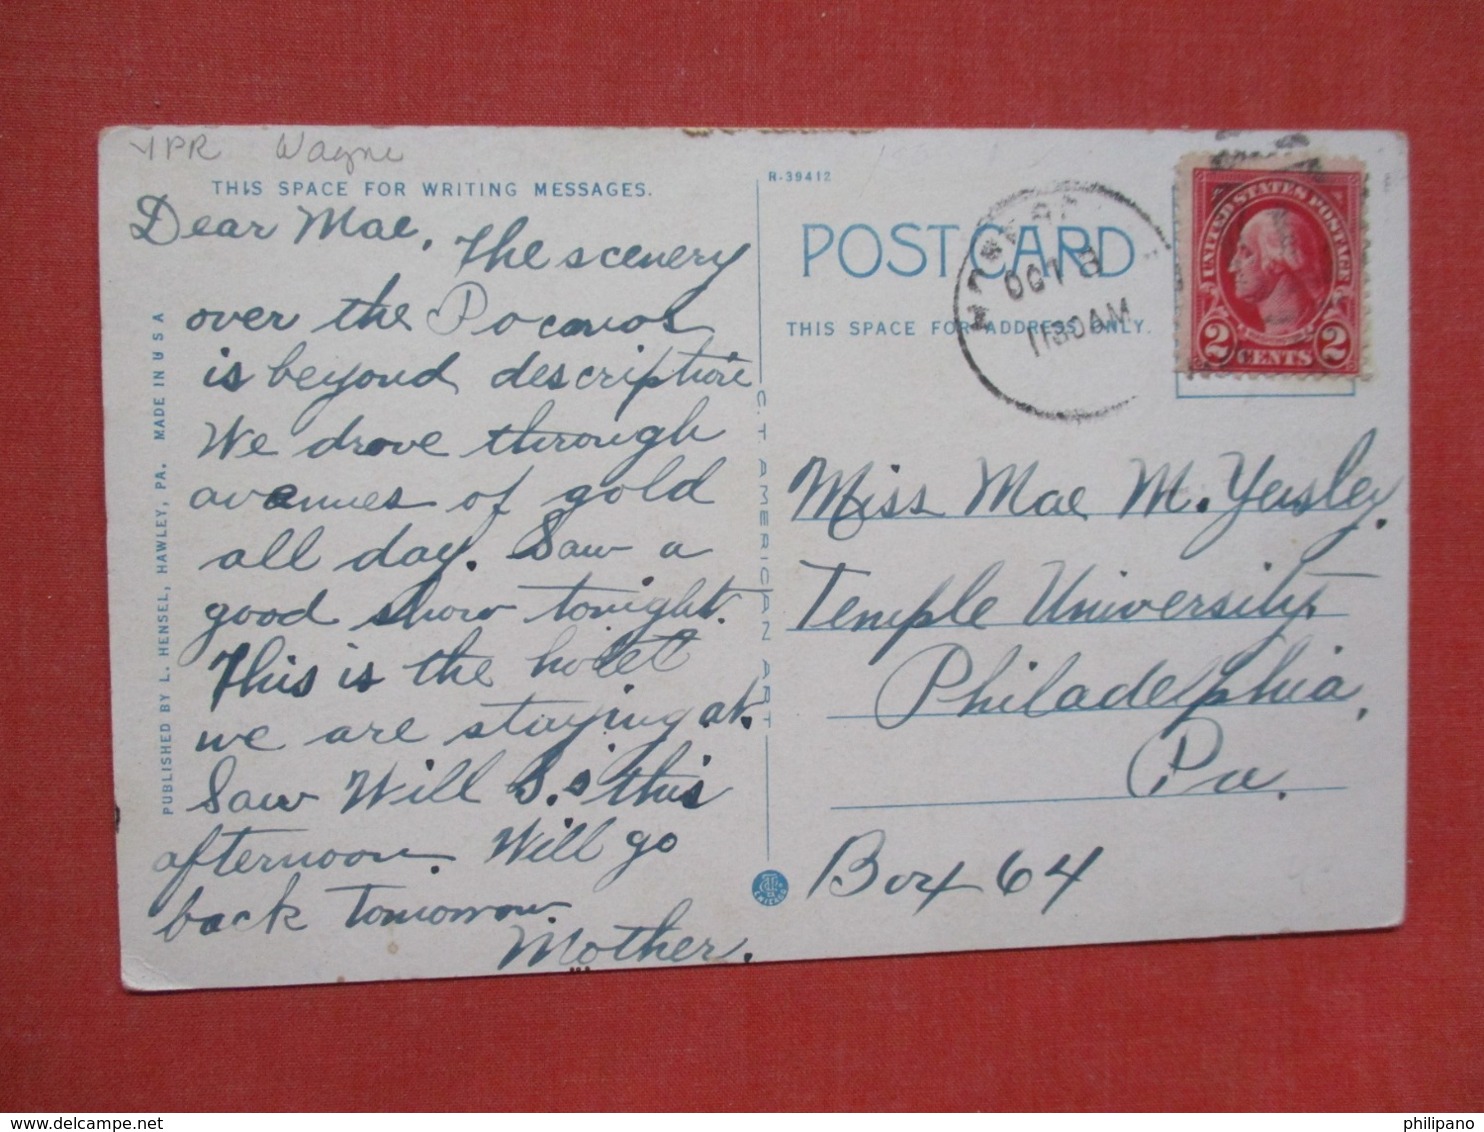 YPR Wayne
THIS SPACE FOR WRITING MESSAGES.
Dear Mae, The scenery
over the Poconos
is beyond description
We drove through
avenues of gold
all day. Saw a
good show tonight.
This is the hotel
we are staying at.
Saw Will S.'s this
afternoon. Will go
back tomorrow
Mother.
PUBLISHED BY L. HENSEL, HAWLEY, PA. MADE IN U S A
C.T. AMERICAN ART
R-39412
POST CARD
THIS SPACE FOR ADDRESS ONLY.
OCT
1130AM
UNITED STATES POSTAGE
2 CENTS 2
Miss Mae M. Yeisley.
Temple University,
Philadelphia,
Pa.
Box 64
philipano